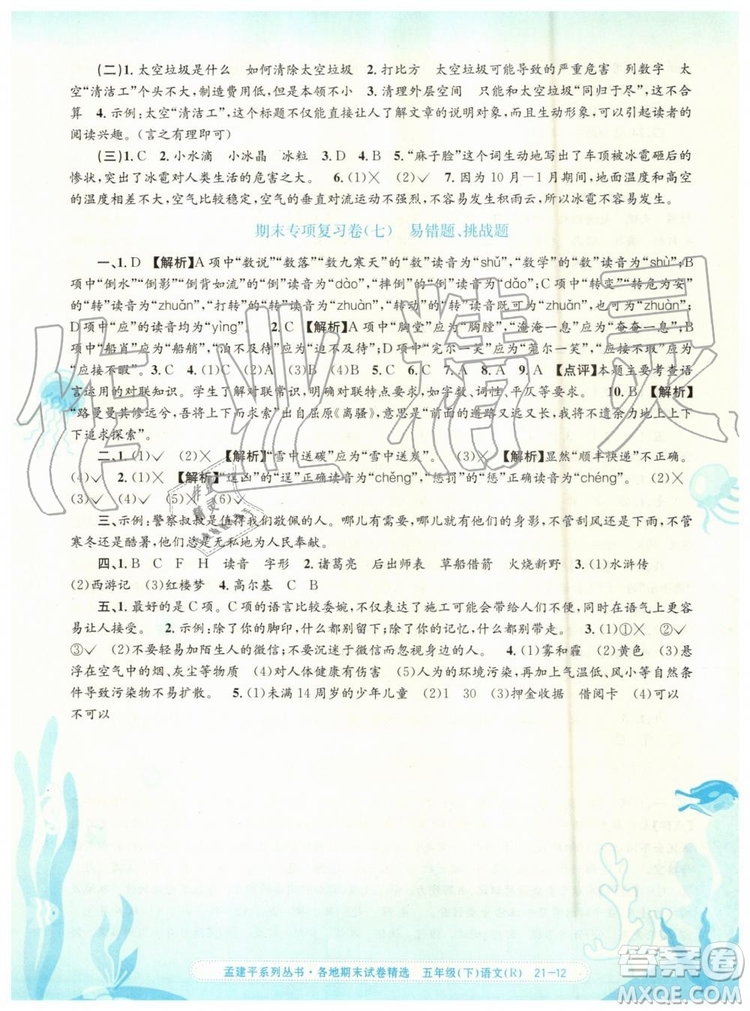 (二)1. 太空垃圾是什么 如何清除太空垃圾 2. 打比方 太空垃圾可能导致的严重危害 列数字 太
空“清洁工”个头不大,制造费用低,但基本是单次任务 3. 清理外层空间 只能和太空垃圾“同归于尽”,很不合
算 4. 示例:太空“清洁工”,这个标题不仅能让人了解文章的说明对象,而且生动形象,可以引起读者的
阅读兴趣。(言之有理即可)
(三)1. C 2. 小水滴 小冰晶 冰粒 3. D 4. B 5. “麻子脸”这个词生动地写出了车顶被冰雹砸后的
惨状,从而表现出冰雹对人类生活的危害之大。 6. (1)× (2)√ 7. 因为 10 月-1 月期间,地面温度和高空
的温度相差不大,空气比较稳定,空气的垂直对流运动不强烈,不容易产生积雨云,所以冰雹很少。
期末专项复习卷(七) 易错题、挑战题
一、1. D 【解析】A项中“数说”“数落”“数九寒天”的“数”读音为“shǔ”,“数学”的“数”读音为“shù”;B
项中“倒水”“倒影”“倒背如流”的“倒”读音为“dào”,“摔倒”的“倒”读音为“dǎo”;C项中“转变”“转危为安”
的“转”读音为“zhuǎn”,“打转”的“转”读音为“zhuàn”,“转动”的“转”读音既可为“zhuǎn”,也可为“zhuàn”;
D项中“应”的读音均为“yìng”。 2. C 【解析】A项中“胸堂”应为“胸膛”,“淹淹一息”应为“奄奄一息”;B项
中“船肖”应为“船艄”,“泊不及待”应为“迫不及待”;D项中“完尔一笑”应为“莞尔一笑”,“应接不瑕”应为
“应接不暇”。 3. C 4. (1)C (2)A (3)B 5. B 6. C 7. A 8. A 9. A 【点评】本题主要考查语
言运用的对联知识。学生了解对联常识,明确对联特点要求,如字数、词性、平仄等要求。 10. B 【解析】
“路曼曼其修远兮,吾将上下而求索”出自屈原《离骚》,意思是“前面的道路又远又长,我将不遗余力地上上下
下追求探索”。
二、1. (1)√ (2)× 【解析】“雪中送碳”应为“雪中送炭”。 (3)× 【解析】“虽然”“顺丰快递”不正确。
(4)√ 2. (1)× 【解析】“逞凶”的“逞”正确读音为“chěng”,“惩罚”的“惩”正确读音为“chéng”。 (2)×
(3)√ (4)√ (5)× (6)√
三、示例:警察叔叔是值得我们敬佩的人。哪儿有需要,哪儿就有他们。不管刮风还是下雨,不管
寒冬还是酷暑,他们总是无私地为人民奉献。
四、1. B C F H 读音 字形 2. 诸葛亮 后出师表 草船借箭 火烧新野 3. (1)水浒传
(2)西游记 (3)红楼梦 4. 高尔基 C B
五、1. 最好的是C项。C项的语言比较委婉,不仅准确表达了施工可能会带来的影响,而且在语气上更
易让人接受。 2. 示例:除了你的脚印,什么都别留下;除了你的记忆,什么都别带走。 3. (1)①× ②√
③√ (2)不要轻易添加陌生人的微信;不要沉迷于微信聊天,以免影响视力。 4. (1)雾和霾 (2)黄色 悬
浮在空气中的烟、灰尘等物质 (3)越重 (4)对人体有危害 (5)人为的环境污染,风小等自然气象条
件导致污染物不易扩散。 5. (1)未满 14 周岁的少年儿童 (2)1 30 (3)押金收据 借阅卡 (4)可以
不可以
孟建平系列丛书·各地期末试卷精选 五年级(下)语文(R) 21-12
作业精灵
答案圈